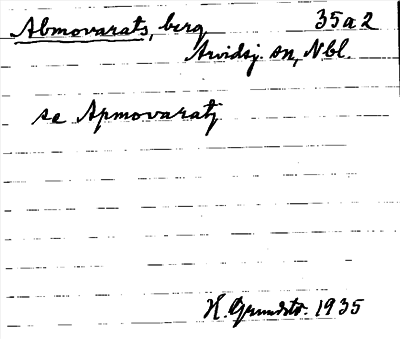 Abmovarats, berg 35a2
Arvidsj. sn, Nbl.
se Apmovaratj
K. Grundstr. 1935